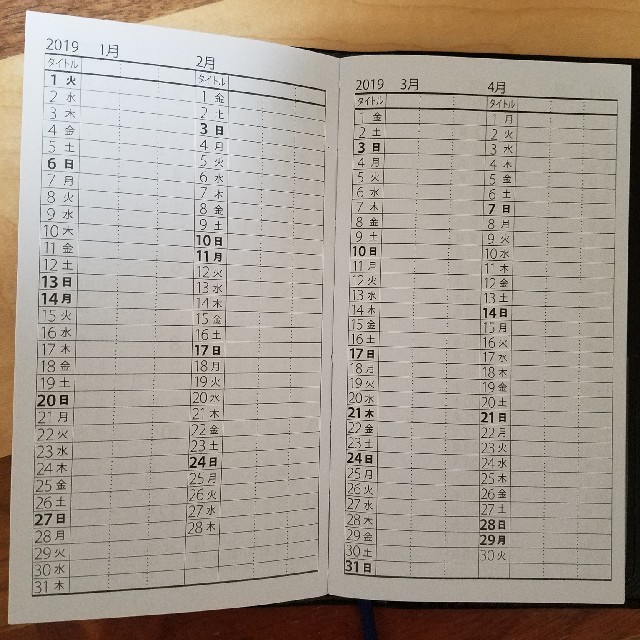 2019 1月
タイトル
1 火
2 水
3 木
4 金
5 土
6 日
7 月
8 火
9 水
10 木
11 金
12 土
13 日
14 月
15 火
16 水
17 木
18 金
19 土
20 日
21 月
22 火
23 水
24 木
25 金
26 土
27 日
28 月
29 火
30 水
31 木
2月
タイトル
1 金
2 土
3 日
4 月
5 火
6 水
7 木
8 金
9 土
10 日
11 月
12 火
13 水
14 木
15 金
16 土
17 日
18 月
19 火
20 水
21 木
22 金
23 土
24 日
25 月
26 火
27 水
28 木
2019 3月
タイトル
1 金
2 土
3 日
4 月
5 火
6 水
7 木
8 金
9 土
10 日
11 月
12 火
13 水
14 木
15 金
16 土
17 日
18 月
19 火
20 水
21 木
22 金
23 土
24 日
25 月
26 火
27 水
28 木
29 金
30 土
31 日
4月
タイトル
1 月
2 火
3 水
4 木
5 金
6 土
7 日
8 月
9 火
10 水
11 木
12 金
13 土
14 日
15 月
16 火
17 水
18 木
19 金
20 土
21 日
22 月
23 火
24 水
25 木
26 金
27 土
28 日
29 月
30 火